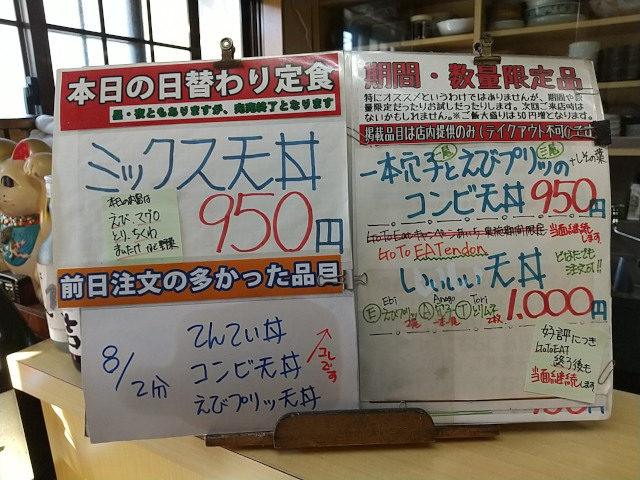 本日の日替わり定食
昼・夜ともありますが、完売終了となります
ミックス天丼
本日の内容は
えび、マグロ
とり、ちくわ
まいたけ など野菜
950円
前日注文の多かった品目
8/2分
てんてい丼
コンビ天丼
えびプリッツ天丼
コレです
期間・数量限定品
特にオススメというわけではありませんが、期間や数
量限定だったりお試しだったりします。次回ご来店時は
ないかもしれません。※ご飯大盛りは50円増となります。
掲載品目は店内提供のみ(テイクアウト不可)です
一本穴子とえびプリッツの
一尾
三尾
+しその葉
コンビ天丼950円
GoToEatキャンペーンあいち 実施期間限定
当面継続します
GoToEATendon
どなたでも
注文可!!
いいいい天丼
Ebi
Anago
Tori
Eえびプリッツ A穴子 Tとりムネ
2尾
一本一尾
2枚
1.000円
好評につき
GoToEAT
終了後も
当面継続します